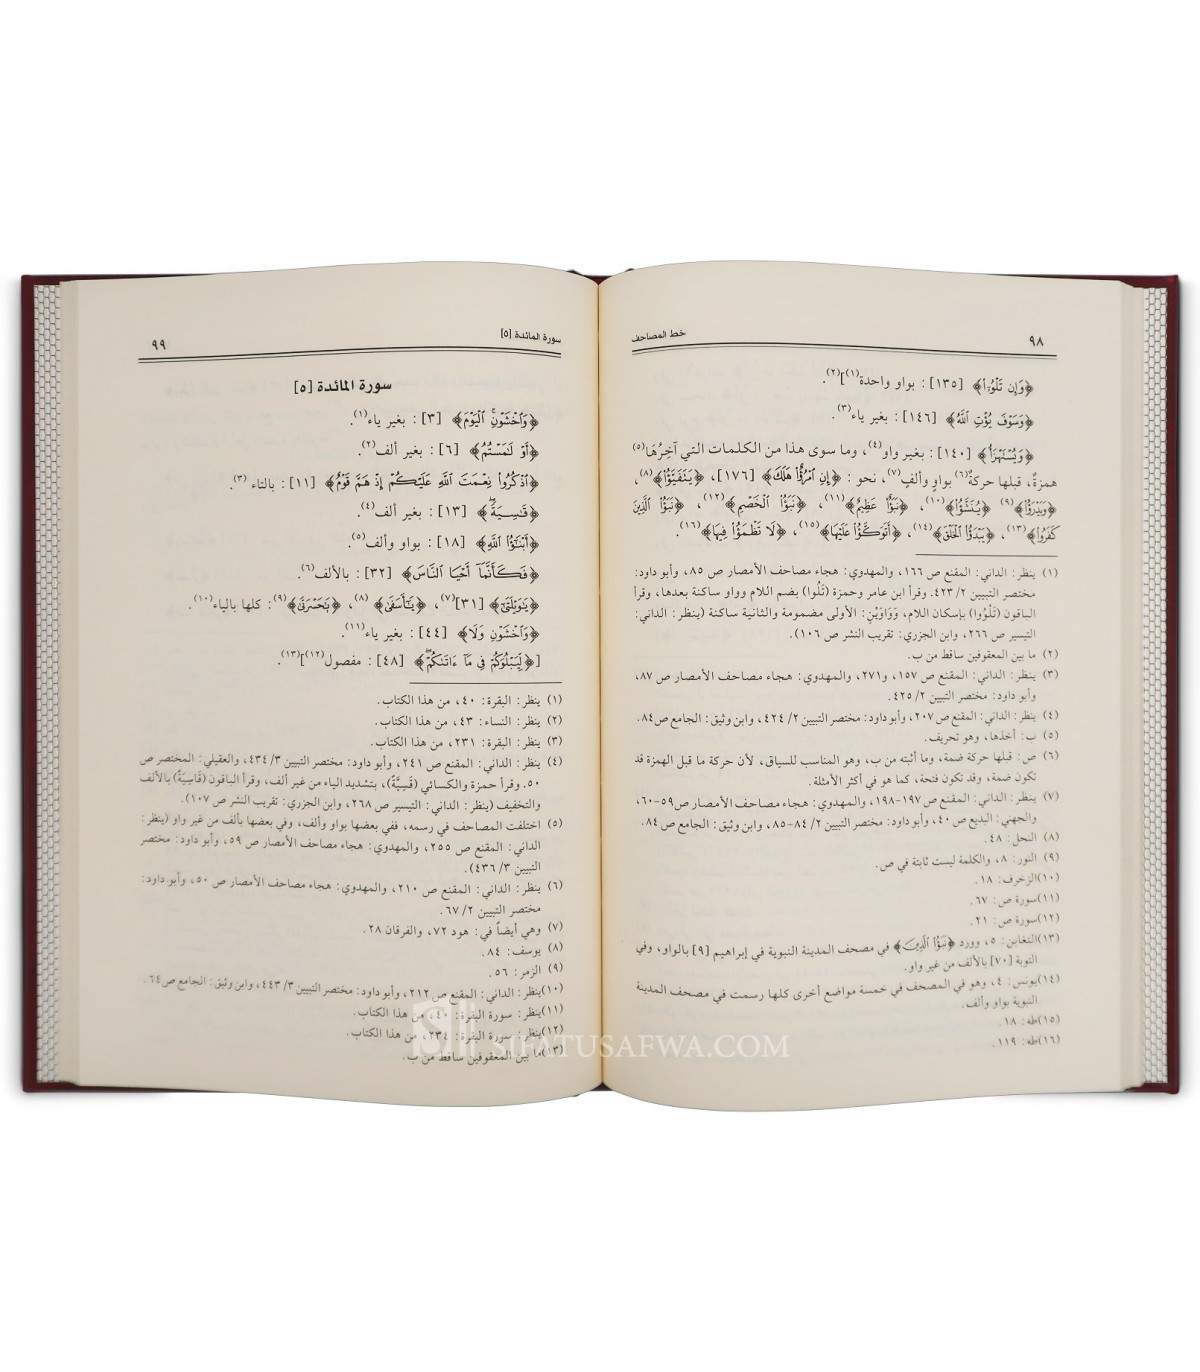 ٩٨
خط المصاحف
﴿وَإِن تَلْوُۥٓا۟﴾ [١٣٥] : بواو واحدة(١)](٢).
﴿وَسَوْفَ يُؤْتِ ٱللَّهُ﴾ [١٤٦] : بغير ياء(٣).
﴿وَيُسْتَهْزَأُ﴾ [١٤٠] : بغير واو(٤)، وما سوى هذا من الكلمات التي آخِرُهَا(٥)
همزةٌ، قبلها حركةٌ(٦) بواوٍ وألفٍ(٧)، نحو : ﴿إِنِ ٱمْرُؤٌا۟ هَلَكَ﴾ [١٧٦]، ﴿يَتَفَيَّؤُا۟﴾(٨)،
﴿وَيَدْرَؤُا۟﴾(٩) ﴿يُنَشَّؤُا۟﴾(١٠)، ﴿نَبَؤٌا۟ عَظِيمٌ﴾(١١)، ﴿نَبَؤُا۟ ٱلْخَصْمِ﴾(١٢)، ﴿نَبَؤُا۟ ٱلَّذِينَ
كَفَرُوا۟﴾(١٣)، ﴿يَبْدَؤُا۟ ٱلْخَلْقَ﴾(١٤)، ﴿أَتَوَكَّؤُا۟ عَلَيْهَا﴾(١٥)، ﴿لَا تَظْمَؤُا۟ فِيهَا﴾(١٦).
(١) ينظر: الداني: المقنع ص ١٦٦، والمهدوي: هجاء مصاحف الأمصار ص ٨٥، وأبو داود:
مختصر التبيين ٢/ ٤٢٣. وقرأ ابن عامر وحمزة (تَلُوا) بضم اللام وواو ساكنة بعدها، وقرأ
الباقون (تَلْوُوا) بإسكان اللام، وَوَاوَيْنِ: الأولى مضمومة والثانية ساكنة (ينظر: الداني:
التيسير ص ٢٦٦، وابن الجزري: تقريب النشر ص ١٠٦).
(٢) ما بين المعقوفين ساقط من ب.
(٣) ينظر: الداني: المقنع ص ١٥٧، و٢٧١، والمهدوي: هجاء مصاحف الأمصار ص ٨٧،
وأبو داود: مختصر التبيين ٢/ ٤٢٥.
(٤) ينظر: الداني: المقنع ص ٢٠٧، وأبو داود: مختصر التبيين ٢/ ٤٢٤، وابن وثيق: الجامع ص ٨٤.
(٥) ب: أخذها، وهو تحريف.
(٦) ص: قبلها حركة ضمة، وما أثبته من ب، وهو المناسب للسياق، لأن حركة ما قبل الهمزة قد
تكون ضمة، وقد تكون فتحة، كما هو في أكثر الأمثلة.
(٧) ينظر: الداني: المقنع ص ١٩٧-١٩٨، والمهدوي: هجاء مصاحف الأمصار ص ٥٩-٦٠،
والجهني: البديع ص ٤٠، وأبو داود: مختصر التبيين ٢/ ٨٤-٨٥، وابن وثيق: الجامع ص ٨٤.
(٨) النحل: ٤٨.
(٩) النور: ٨، والكلمة ليست ثابتة في ص.
(١٠) الزخرف: ١٨.
(١١) سورة ص: ٦٧.
(١٢) سورة ص: ٢١.
(١٣) التغابن: ٥، وورد ﴿نَبَؤُا۟ ٱلَّذِينَ﴾ في مصحف المدينة النبوية في إبراهيم [٩] بالواو، وفي
التوبة [٧٠] بالألف من غير واو.
(١٤) يونس: ٤، وهو في المصحف في خمسة مواضع أخرى كلها رسمت في مصحف المدينة
النبوية بواو وألف.
(١٥) طه: ١٨.
(١٦) طه: ١١٩.
سورة المائدة [٥]
٩٩
سورة المائدة [٥]
﴿وَٱخْشَوْنِ ۚ ٱلْيَوْمَ﴾ [٣] : بغير ياء(١).
﴿أَوْ لَٰمَسْتُمُ﴾ [٦] : بغير ألف(٢).
﴿ٱذْكُرُوا۟ نِعْمَتَ ٱللَّهِ عَلَيْكُمْ إِذْ هَمَّ قَوْمٌ﴾ [١١] : بالتاء (٣).
﴿قَٰسِيَةً ۖ﴾ [١٣] : بغير ألف(٤).
﴿أَبْنَٰٓؤُا۟ ٱللَّهِ﴾ [١٨] : بواو وألف(٥).
﴿فَكَأَنَّمَآ أَحْيَا ٱلنَّاسَ﴾ [٣٢] : بالألف(٦).
﴿يَٰوَيْلَتَىٰٓ﴾ [٣١](٧)، ﴿يَٰٓأَسَفَىٰ﴾ (٨)، ﴿يَٰحَسْرَتَىٰ﴾(٩): كلها بالياء(١٠).
﴿وَٱخْشَوْنِ وَلَا﴾ [٤٤] : بغير ياء(١١).
[﴿لِّيَبْلُوَكُمْ فِى مَآ ءَاتَىٰكُمْ ۖ﴾ [٤٨] : مفصول(١٢)](١٣).
(١) ينظر: البقرة: ٤٠، من هذا الكتاب.
(٢) ينظر: النساء: ٤٣، من هذا الكتاب.
(٣) ينظر: البقرة: ٢٣١، من هذا الكتاب.
(٤) ينظر: الداني: المقنع ص ٢٤١، وأبو داود: مختصر التبيين ٣/ ٤٣٤، والعقيلي: المختصر ص
٥٠. وقرأ حمزة والكسائي (قَسِيَّةً)، بتشديد الياء من غير ألف، وقرأ الباقون (قَاسِيَةً) بالألف
والتخفيف (ينظر: الداني: التيسير ص ٢٦٨، وابن الجزري: تقريب النشر ص ١٠٧).
(٥) اختلفت المصاحف في رسمه، ففي بعضها بواو وألف، وفي بعضها بألف من غير واو (ينظر:
الداني: المقنع ص ٢٥٥، والمهدوي: هجاء مصاحف الأمصار ص ٥٩، وأبو داود: مختصر
التبيين ٣/ ٤٣٦).
(٦) ينظر: الداني: المقنع ص ٢١٠، والمهدوي: هجاء مصاحف الأمصار ص ٥٠، وأبو داود:
مختصر التبيين ٢/ ٦٧.
(٧) وهي أيضاً في: هود ٧٢، والفرقان ٢٨.
(٨) يوسف: ٨٤.
(٩) الزمر: ٥٦.
(١٠) ينظر: الداني: المقنع ص ٢١٢، وأبو داود: مختصر التبيين ٣/ ٤٤٣، وابن وثيق: الجامع ص ٦٤.
(١١) ينظر: سورة البقرة: ٤٠، من هذا الكتاب.
(١٢) ينظر: سورة البقرة: ٢٣٤، من هذا الكتاب.
(١٣) ما بين المعقوفين ساقط من ب.
SIFATUSAFWA.COM